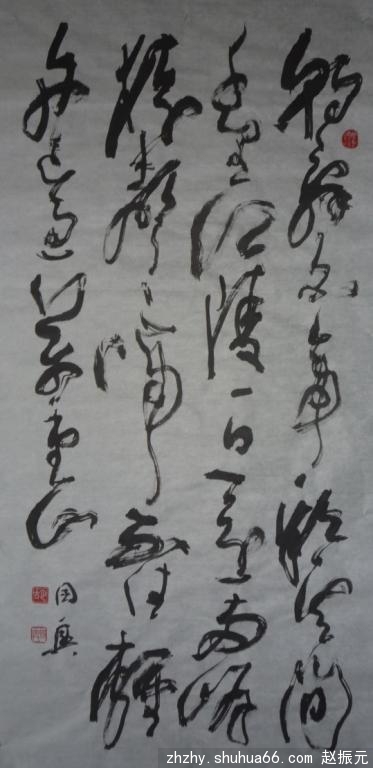 朝辭白帝彩雲間
千里江陵一日還兩岸
猿聲啼不住輕
舟已過萬重山
国真
zhzhy.shuhua66.com 赵振元